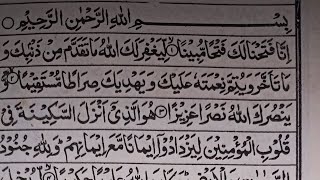 بِسْمِ اللهِ الرَّحْمٰنِ الرَّحِيْمِ
اِنَّا فَتَحْنَا لَكَ فَتْحًا مُّبِيْنًا ۙ لِّيَغْفِرَ لَكَ اللهُ مَا تَقَدَّمَ مِنْ ذَنْۢبِكَ وَ
مَا تَاَخَّرَ وَيُتِمَّ نِعْمَتَهٗ عَلَيْكَ وَيَهْدِيَكَ صِرَاطًا مُّسْتَقِيْمًا ۙ وَّ
يَنْصُرَكَ اللهُ نَصْرًا عَزِيْزًا ۝ هُوَ الَّذِيْۤ اَنْزَلَ السَّكِيْنَةَ فِيْ
قُلُوْبِ الْمُؤْمِنِيْنَ لِيَزْدَادُوْۤا اِيْمَانًا مَّعَ اِيْمَانِهِمْ ؕ وَلِلّٰهِ جُنُوْدُ